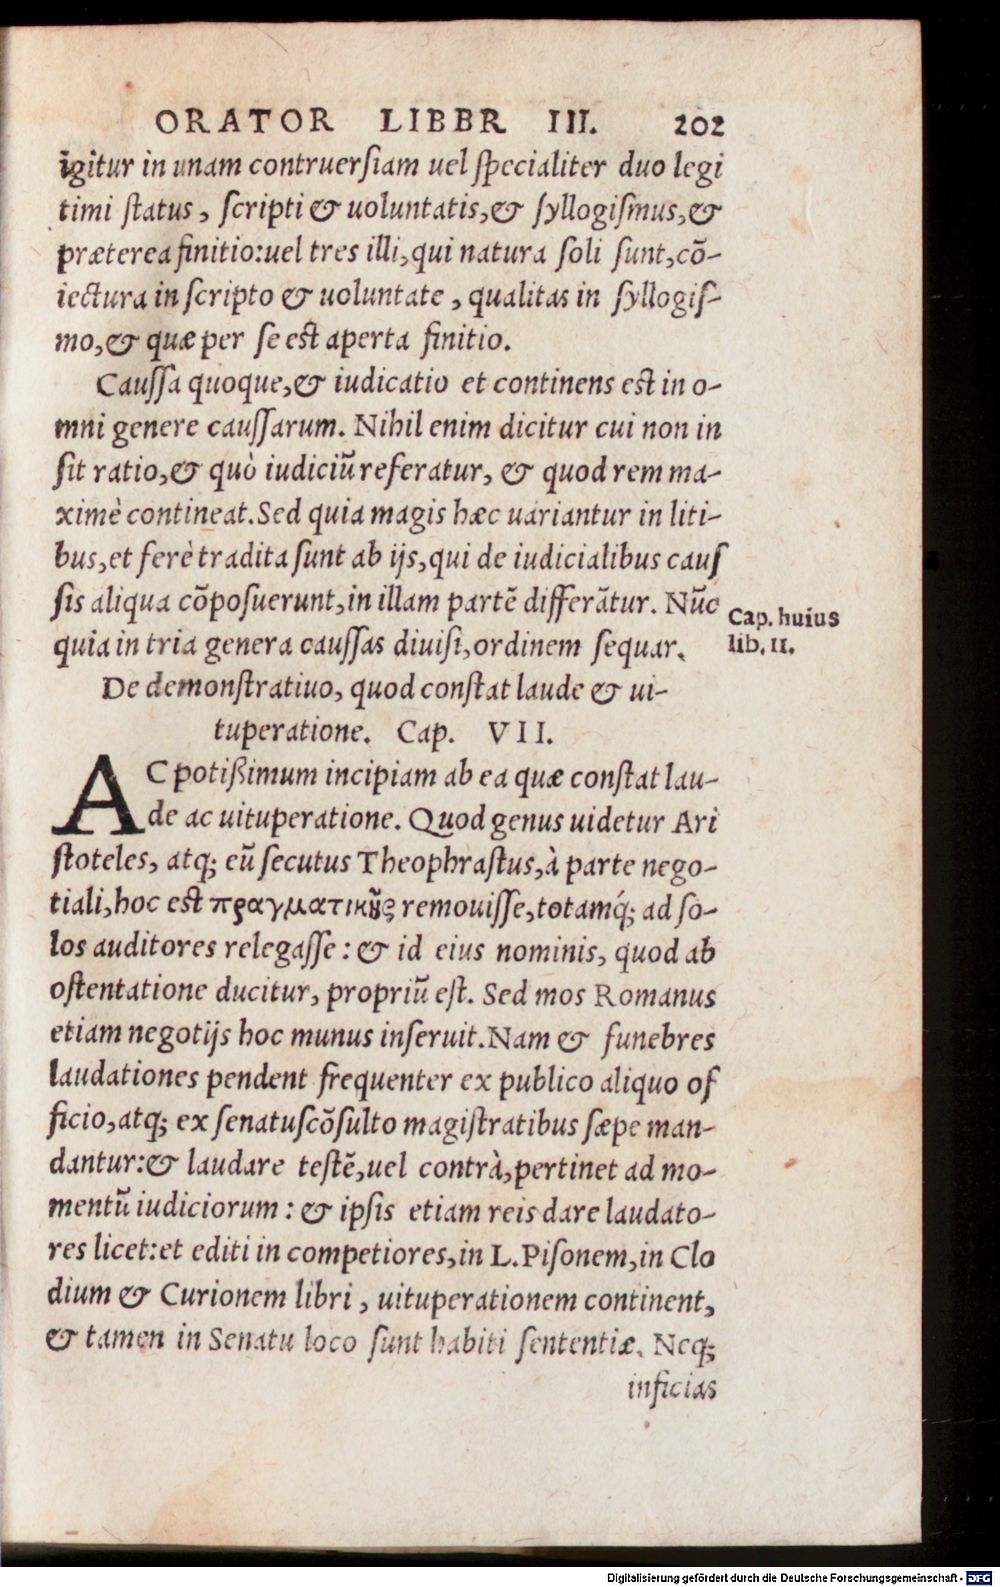 ORATOR LIBER III. 202
igitur in unam contruerſiam uel ſpecialiter duo legi
timi ſtatus, ſcripti & uoluntatis, & ſyllogiſmus, &
præterea finitio: uel tres illi, qui natura ſoli ſunt, cō-
iectura in ſcripto & uoluntate, qualitas in ſyllogiſ-
mo, & quæ per ſe eſt aperta finitio.
Cauſſa quoque, & iudicatio et continens eſt in o-
mni genere cauſſarum. Nihil enim dicitur cui non in
ſit ratio, & quò iudiciū referatur, & quod rem ma-
ximè contineat. Sed quia magis hæc uariantur in liti-
bus, et ferè tradita ſunt ab ijs, qui de iudicialibus cauſ
ſis aliqua cōpoſuerunt, in illam partē differātur. Nūc
Cap. huius
quia in tria genera cauſſas diuiſi, ordinem ſequar.
lib. II.
De demonſtratiuo, quod conſtat laude & ui-
tuperatione. Cap. VII.
AC potißimum incipiam ab ea quæ conſtat lau-
de ac uituperatione. Quod genus uidetur Ari
ſtoteles, atq; eū ſecutus Theophraſtus, à parte nego-
tiali, hoc eſt πραγματικῆς remouiſſe, totamq́; ad ſo-
los auditores relegaſſe: & id eius nominis, quod ab
oſtentatione ducitur, propriū eſt. Sed mos Romanus
etiam negotijs hoc munus inſeruit. Nam & funebres
laudationes pendent frequenter ex publico aliquo of
ficio, atq; ex ſenatuſcōſulto magiſtratibus ſæpe man-
dantur: & laudare teſtē, uel contrà, pertinet ad mo-
mentū iudiciorum: & ipſis etiam reis dare laudato-
res licet: et editi in competiores, in L. Piſonem, in Clo
dium & Curionem libri, uituperationem continent,
& tamen in Senatu loco ſunt habiti ſententiæ. Neq;
inficias
Digitalisierung gefördert durch die Deutsche Forschungsgemeinschaft - DFG